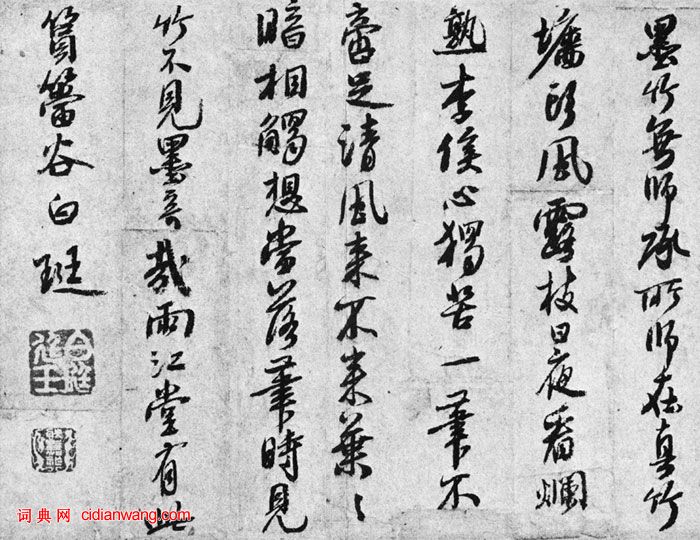 墨竹無師承所師在真竹
墻頭風露枝日夜看爛
熟李侯心獨苦一筆不
啻足清風來不來葉〻
暗相觸想當落筆時見
竹不見墨奇哉雨江堂有此
篔簹谷白珽
词典网 cidianwang.com